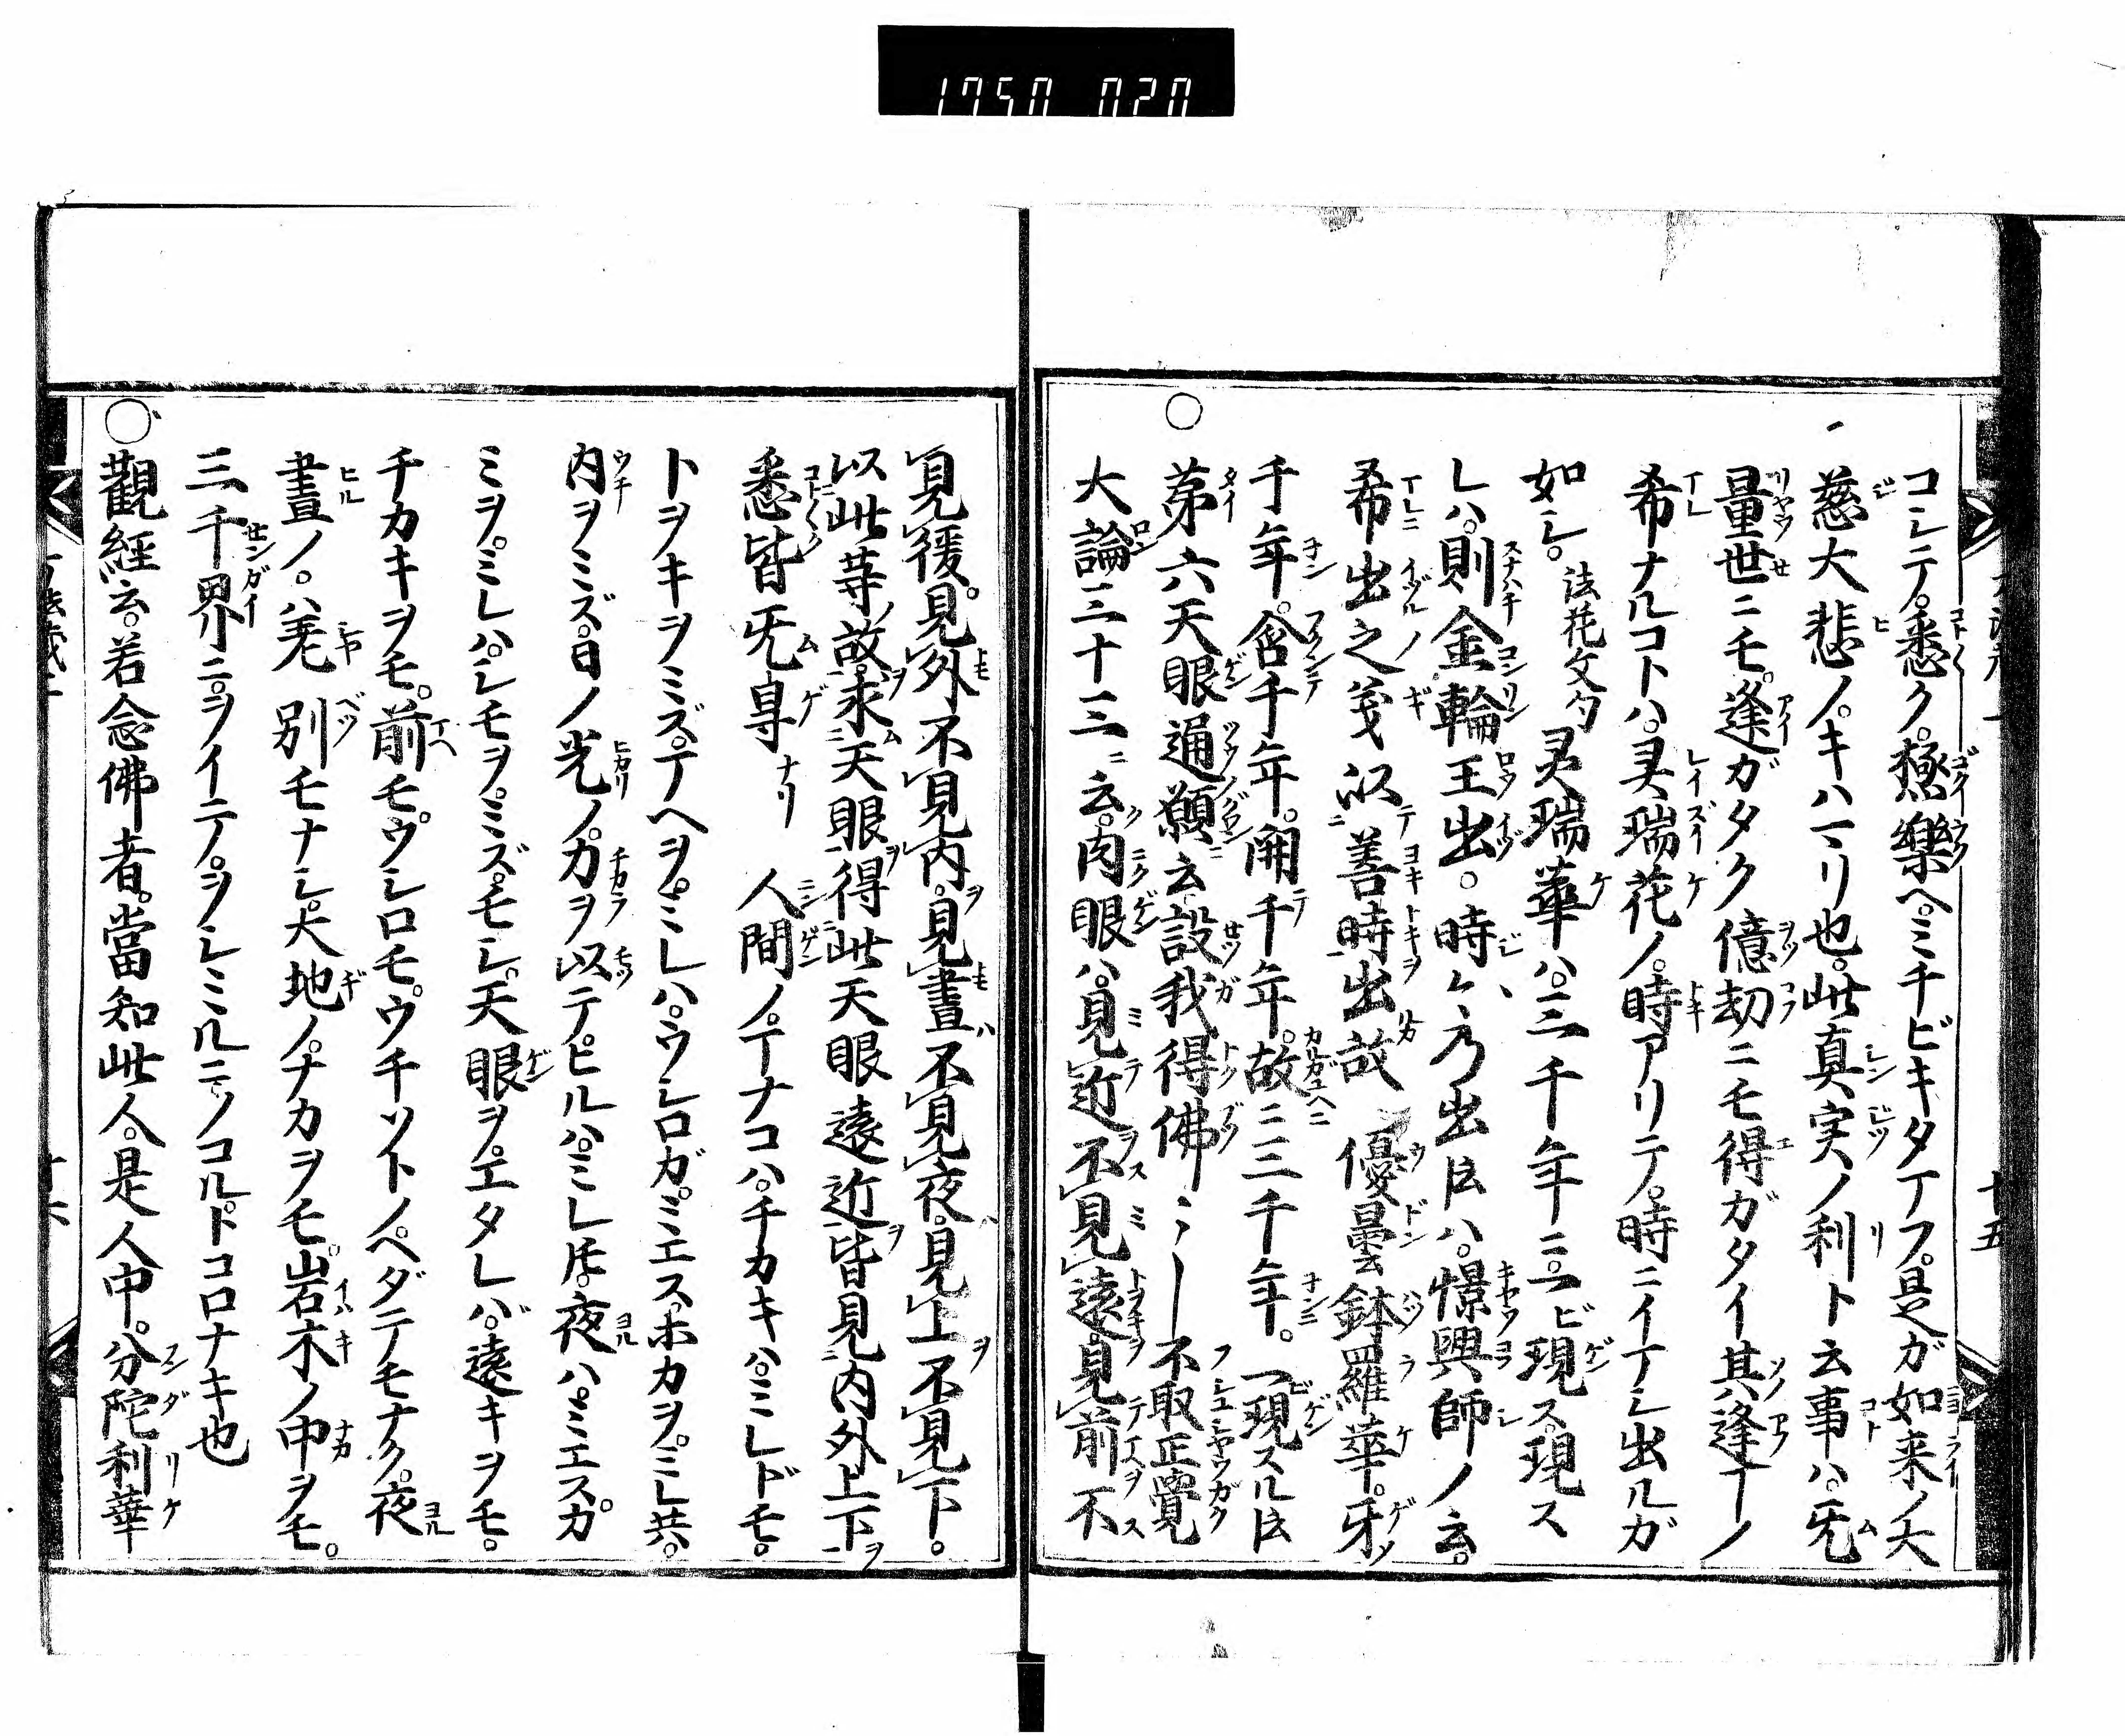 1750 020
コレテ。悉ク。極樂ヘ。ミチビキタマフ。是ガ如来ノ大
慈大悲ノ。キハマリ也。此真実ノ利ト云事ハ。旡
量世ニモ。逢ガタク億劫ニモ得ガタイ其逢コトノ
希ナルコトハ。㚑瑞花ノ。時アリテ。時ニイマシ出ルガ
如シ。法花文句㚑瑞華ハ。三千年ニ。一ビ現ス。現ス
レハ。則金輪王出。時々乃出ト云ハ。憬興師ノ云。
希出之義以善時出故 優曇鉢羅華。牙ノ
千年。含千年。開千年。故ニ三千年。一現スルト云
○第六天眼通願云設我得佛〻〡不取正覺
大論三十三ニ云。肉眼ハ。見近不見遠見前不
見後。見外不見内。見晝不見夜。見上不見下。
以此等故。求天眼得此天眼遠近皆見内外上下
悉皆旡㝵ナリ 人間ノ。マナコハ。チカキハ。ミレドモ。
トヲキヲミズ。マヘヲ。ミレハ。ウシロガ。ミエス。ホカヲ。ミレ共。
内ヲミズ。日ノ光ノ。力ヲ以テ。ヒルハ。ミレ𪜈。夜ハ。ミエス。カ
ミヲ。ミレハ。シモヲ。ミズ。モシ。天眼ヲ。エタレバ。遠キヲモ。
チカキヲモ。前モ。ウシロモ。ウチソトノ。ヘダテモナク。夜
晝ノ。差別モナシ。大地ノ。ナカヲモ。岩木ノ中ヲモ。
三千界ニ。ヲイテ。ヲシミルニ。ノコル。トコロナキ也
○觀経云。若念佛者。當知此人。是人中。分陀利華
十五